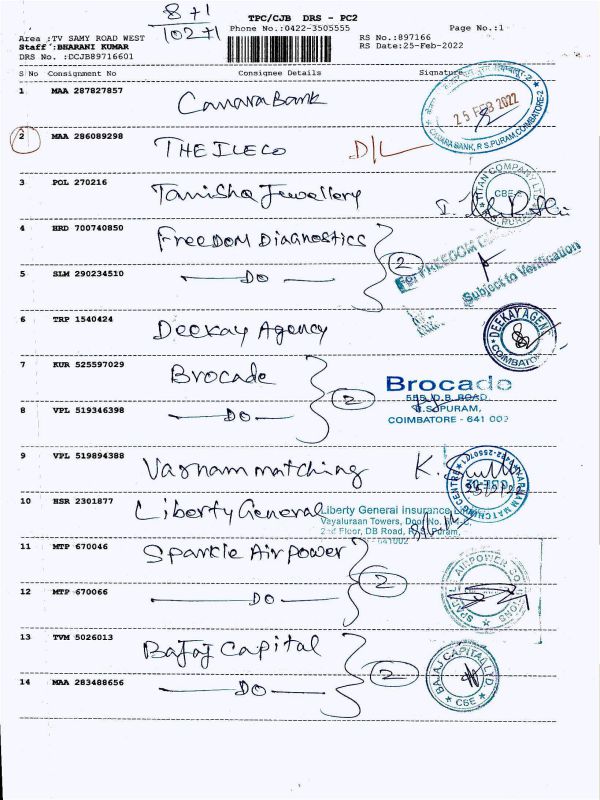 8+1
102+1
TPC/CJB DRS - PC2
Phone No.:0422-3505555 Page No.:1
Area :TV SAMY ROAD WEST RS No.:897166
Staff :BHARANI KUMAR RS Date:25-Feb-2022
DRS No. :DCJB89716601
S No Consignment No Consignee Details Signature
1 MAA 287827857 Canara Bank
25 FEB 2022
CANARA BANK, R S.PURAM, COIMBATORE-2
2 MAA 286089298 THE ILECO D/L
3 POL 270216 Tanisha Jewellery
TITAN COMPANY
CBE-2
R.S. PURAM
4 HRD 700740850 Freedom Diagnostics
2
For FREEDOM
Subject to Verification
5 SLM 290234510 DO
6 TRP 1540424 Deekay Agency
DEEKAY AGEN
COIMBATOR
7 KUR 525597029 Brocade
2
Brocade
555, D.B. ROAD,
R.S.PURAM,
COIMBATORE - 641 002
8 VPL 519346398 DO
9 VPL 519894388 Varnam matching
K.
10 HSR 2301877 Liberty General
Liberty General Insurance
Vayaluraan Towers, Door No.
2nd Floor, DB Road, R.S. Puram,
641002
11 MTP 670046 Sparkle Air power
2
12 MTP 670066 DO
13 TVM 5026013 Bajaj Capital
2
BAJAJ CAPITAL LTD
CBE
14 MAA 283488656 DO